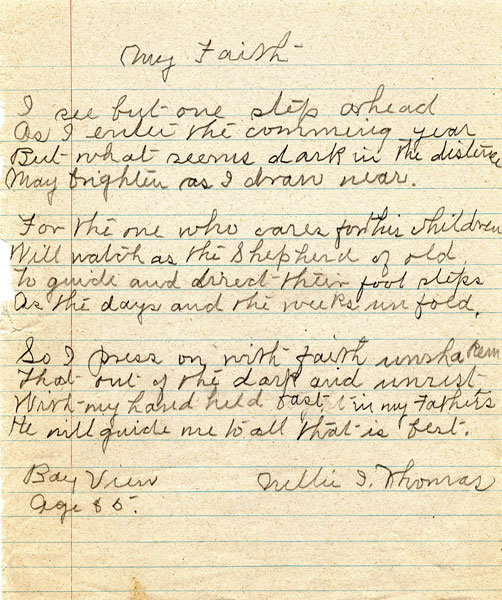 My Faith
I see but one step ahead
As I enter the comming year
But what seems dark in the distence
May brighten as I draw near.
For the one who cares for his children
Will watch as the Shepherd of old
To guide and direct their foot steps
As the days and the weeks unfold.
So I press on with faith unshaken
That out of the dark and unrest
With my hand held fast in my Fathers
He will guide me to all that is best.
Bay View Nellie I. Thomas
Age 85.